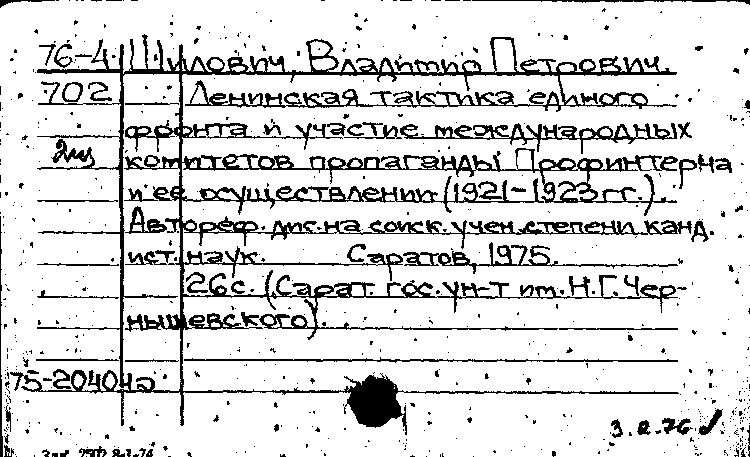 76-4 Шилович, Владимир Петрович.
702 Ленинская тактика единого
фронта и участие международных
2из комитетов пропаганды Профинтерна
в ее осуществлении (1921-1923 гг.).
Автореф. дис. на соиск. учен. степени канд.
ист. наук. Саратов, 1975.
26 с. (Сарат. гос. ун-т им. Н.Г. Чер-
нышевского).
75-20404
3.2.76